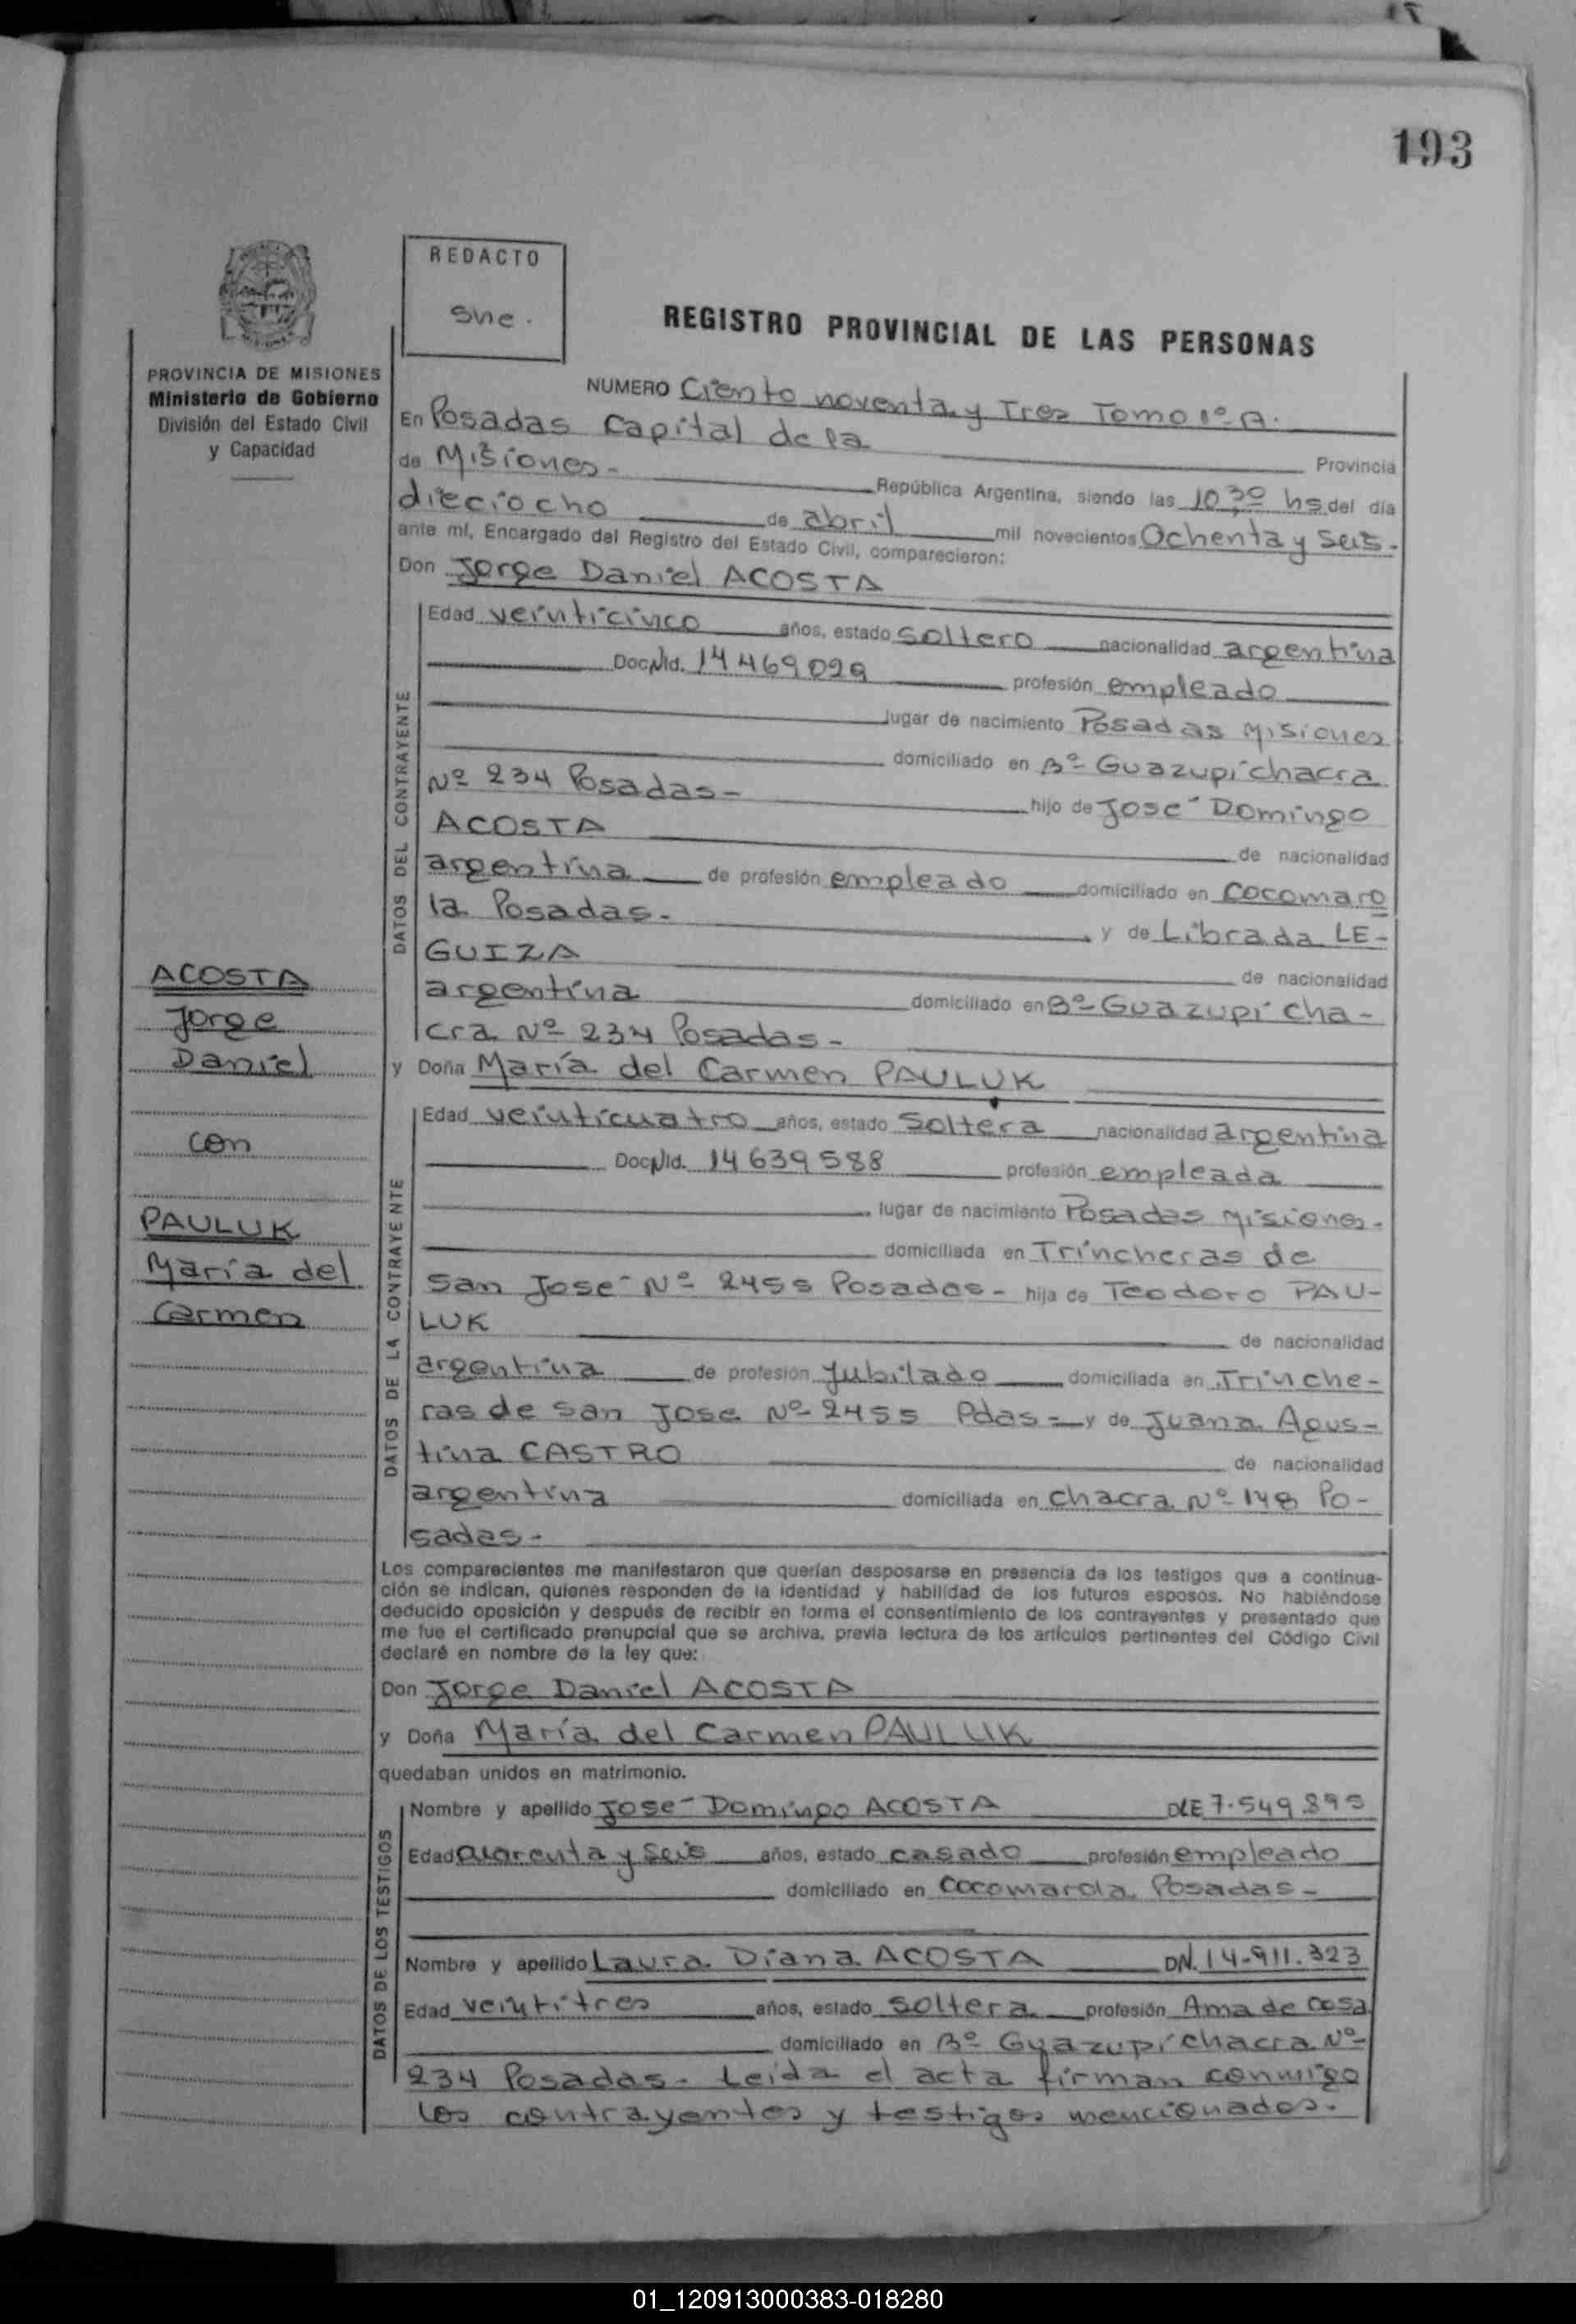 193
REDACTO
sne.
REGISTRO PROVINCIAL DE LAS PERSONAS
PROVINCIA DE MISIONES
Ministerio de Gobierno
División del Estado Civil
y Capacidad
NUMERO Ciento noventa y Tres Tomo 1º A.
En Posadas Capital de la
Provincia
de Misiones.- República Argentina, siendo las 10,30 hs del día
dieciocho de abril mil novecientos Ochenta y Seis.-
ante mí, Encargado del Registro del Estado Civil, comparecieron:
Don Jorge Daniel ACOSTA
DATOS DEL CONTRAYENTE
Edad veinticinco años, estado soltero nacionalidad argentina
Doc. Nld. 14469029 profesión empleado
lugar de nacimiento Posadas Misiones
domiciliado en Bº Guazupi chacra
Nº 234 Posadas- hijo de José Domingo
ACOSTA de nacionalidad
argentina de profesión empleado domiciliado en Cocomaro
la Posadas.- y de Librada LE-
GUIZA de nacionalidad
argentina domiciliado en Bº Guazupi cha-
cra Nº 234 Posadas-
y Doña María del Carmen PAULUK
DATOS DE LA CONTRAYENTE
Edad veinticuatro años, estado Soltera nacionalidad argentina
Doc. Nld. 14639588 profesión empleada
lugar de nacimiento Posadas Misiones-
domiciliada en Trincheras de
San José Nº 2455 Posadas- hija de Teodoro PAU-
LUK de nacionalidad
argentina de profesión Jubilado domiciliada en Trinche-
ras de San Jose Nº 2455 Pdas- y de Juana Agus-
tina CASTRO de nacionalidad
argentina domiciliada en chacra Nº 148 Po-
sadas-
ACOSTA
Jorge
Daniel
con
PAULUK
María del
Carmen
Los comparecientes me manifestaron que querían desposarse en presencia de los testigos que a continua-
ción se indican, quienes responden de la identidad y habilidad de los futuros esposos. No habiéndose
deducido oposición y después de recibir en forma el consentimiento de los contrayentes y presentado que
me fue el certificado prenupcial que se archiva, previa lectura de los artículos pertinentes del Código Civil
declaré en nombre de la ley que:
Don Jorge Daniel ACOSTA
y Doña María del Carmen PAULUK
quedaban unidos en matrimonio.
DATOS DE LOS TESTIGOS
Nombre y apellido José Domingo ACOSTA DLE 7.549.895
Edad cuarenta y seis años, estado casado profesión empleado
domiciliado en Cocomarola Posadas-
Nombre y apellido Laura Diana ACOSTA DN. 14.911.323
Edad veintitres años, estado soltera profesión Ama de casa
domiciliado en Bº Guazupi chacra Nº
234 Posadas. Leída el acta firman conmigo
los contrayentes y testigos mencionados.-
01_120913000383-018280